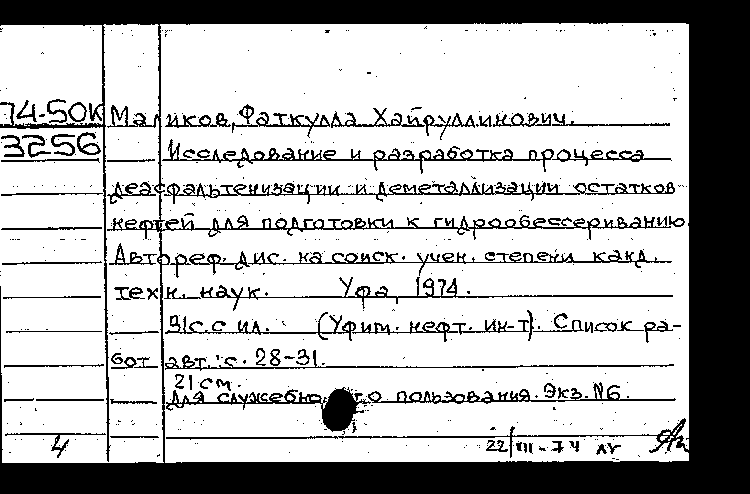 74-50К Маликов, Фаткулла Хайруллинович.
3256 Исследование и разработка процесса
деасфальтенизации и деметаллизации остатков
нефтей для подготовки к гидрообессериванию.
Автореф. дис. на соиск. учен. степени канд.
техн. наук. Уфа, 1974.
31с. с ил. (Уфим. нефт. ин-т). Список ра-
бот авт.: с. 28-31.
21 см.
Для служебного пользования. Экз. №6.
4 22/III-74